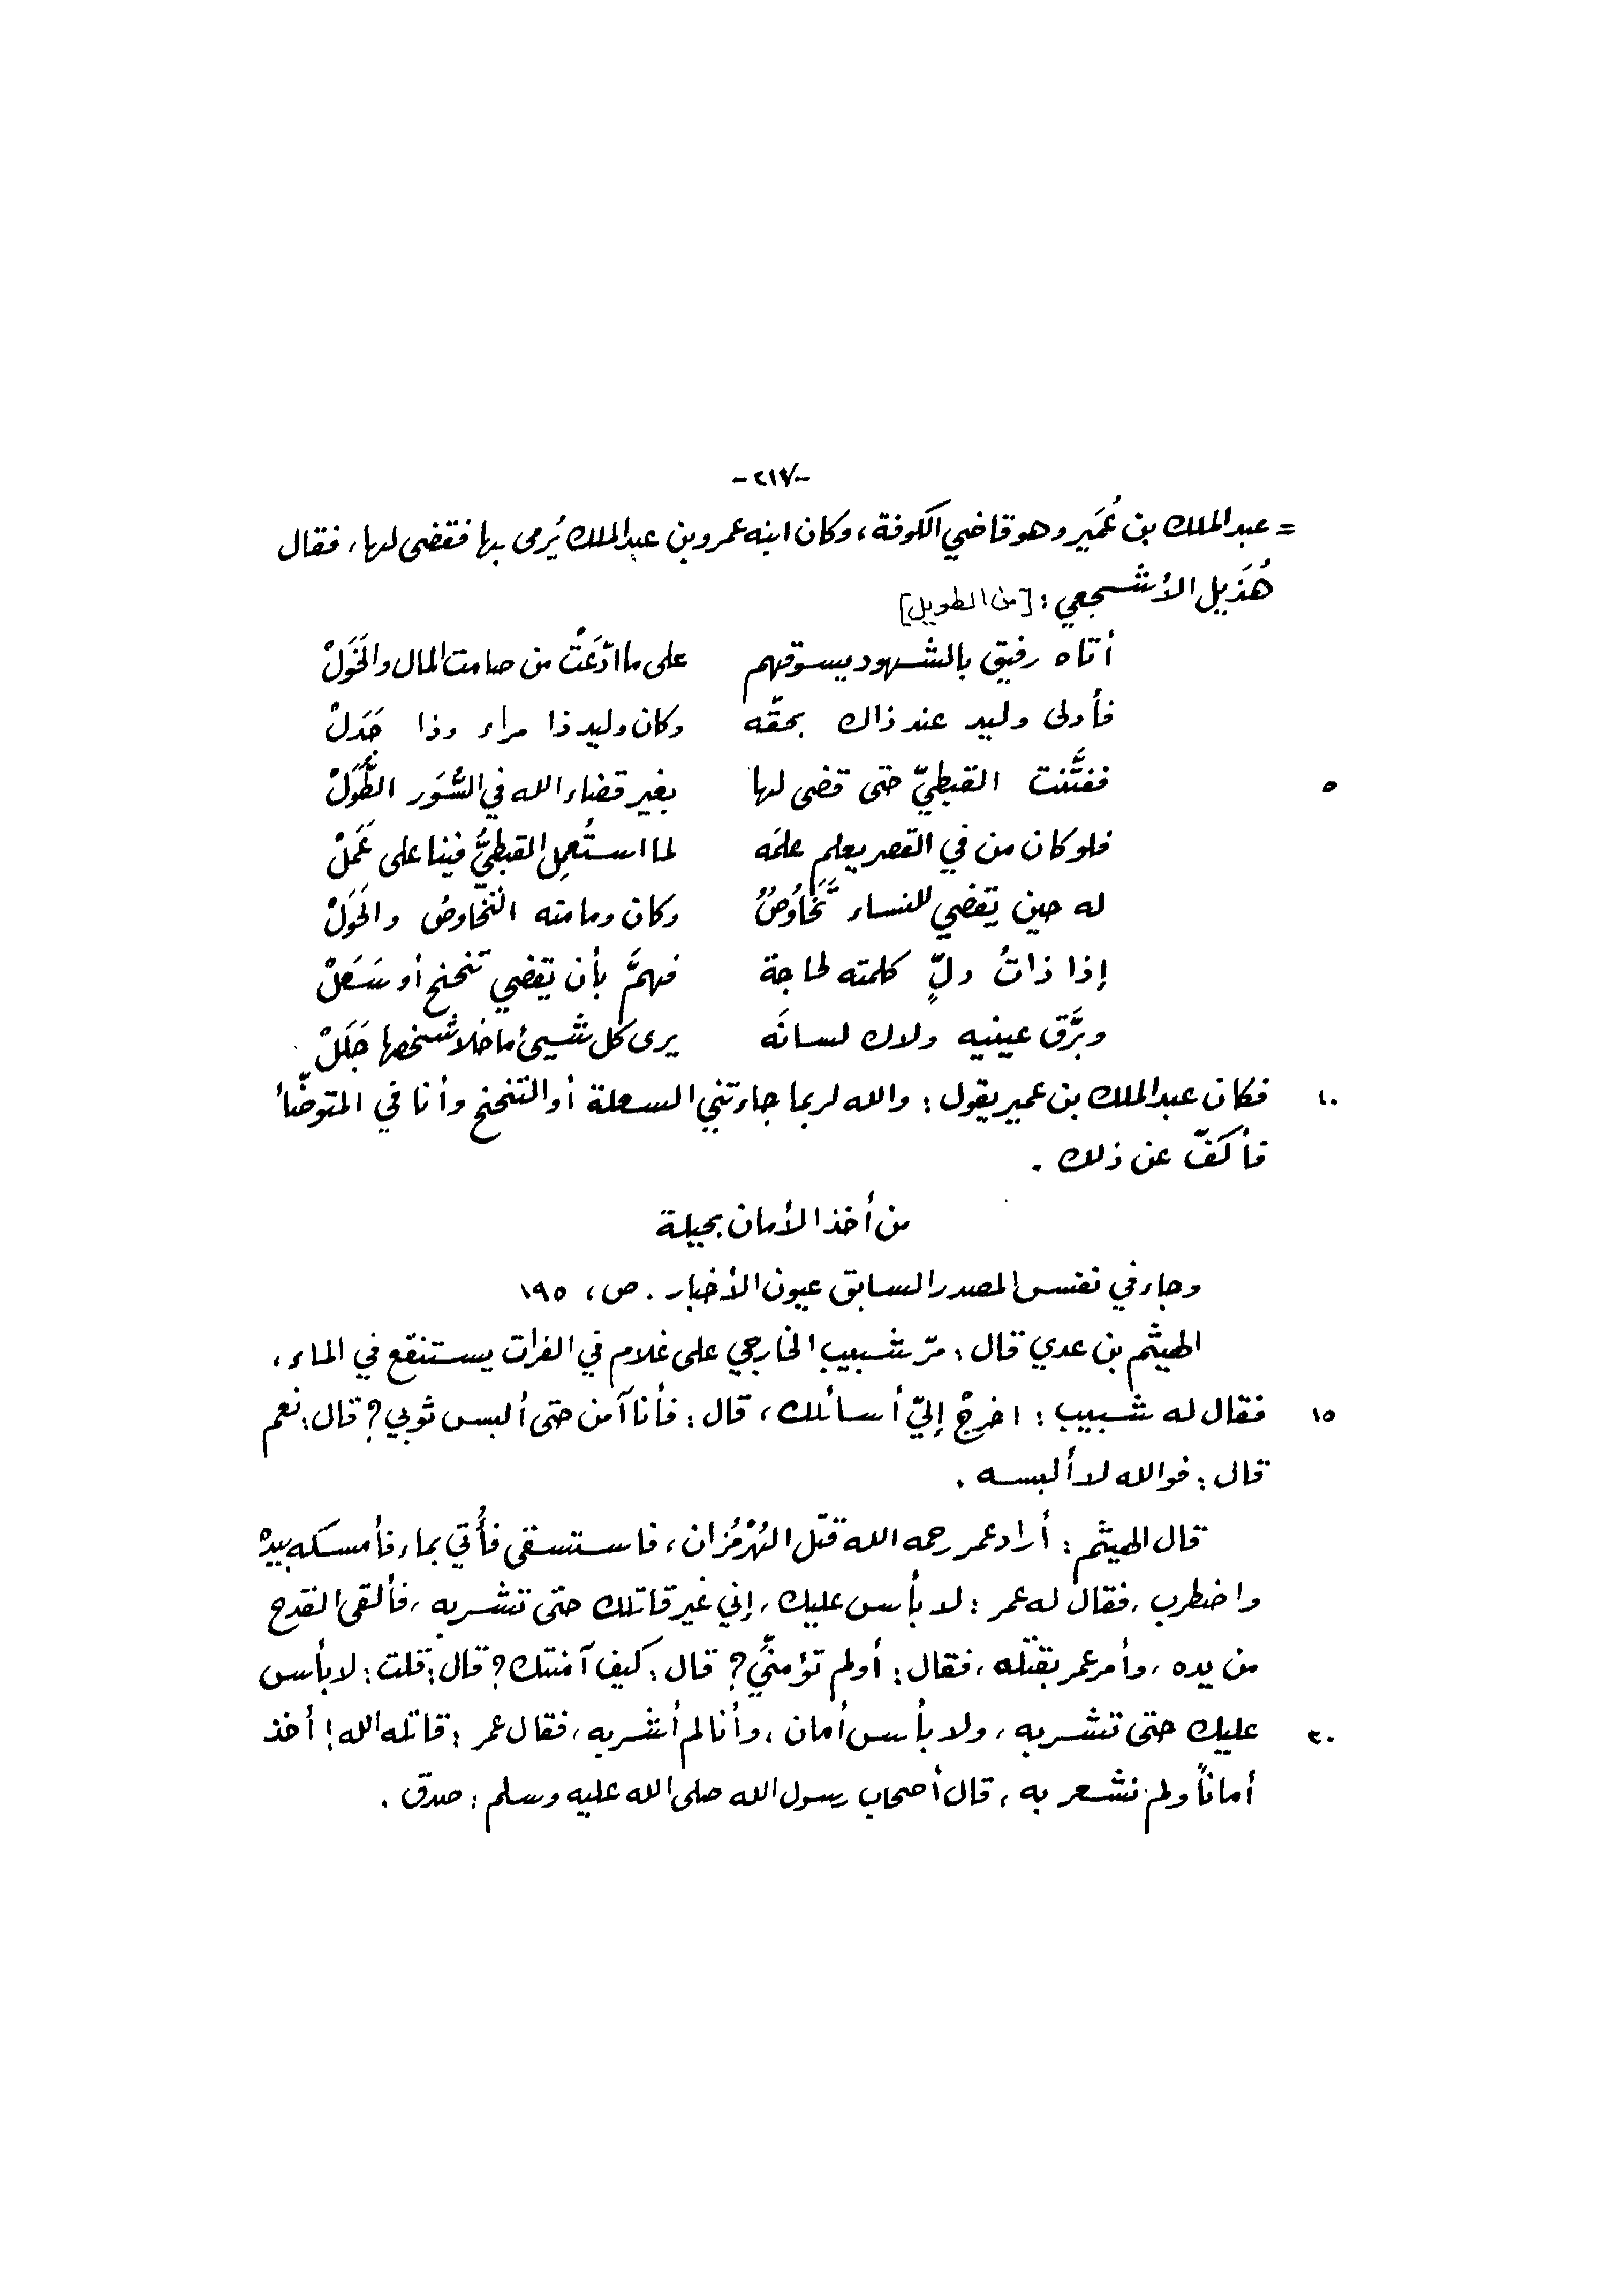 -٢١٧-
= عبد الملك بن عُمَير وهو قاضي الكوفة، وكان ابنه عمرو بن عبد الملك يُرمى بها فقضى لها، فقال
هُذَيل الأشجعي: [من الطويل]
أتاه رفيق بالشهود يسوقهم على ما ادّعَتْ من صامت المال والخَوَلْ
فأدلى وليد عند ذاك بحقّه وكان وليد ذا مراء وذا جَدَلْ
٥ ففتَّنت القبطيّ حتى قضى لها بغير قضاء الله في السُّوَر الطُّوَلْ
فلو كان من في القصر يعلم علمَه لما استُعمِل القبطيُّ فينا على عَمَلْ
له حين يقضي للنساء تَخَاوُصٌ وكان وما منه التّخاوصُ والحَوَلْ
إذا ذاتُ دلٍّ كلمته لحاجة فهمَّ بأن يقضي تنحنح أو سَعَلْ
وبَرَّق عينيه ولاك لسانَه يرى كل شيئ ما خلا شخصها جَلَلْ
١٠ فكان عبد الملك بن عمير يقول: والله لربما جاءتني السعلة أو التنحنح وأنا في المتوضّأ
فأكفّ عن ذلك.
من أخذ الأمان بحيلة
وجاء في نفس المصدر السابق عيون الأخبار. ص، ١٩٥
الهيثم بن عدي قال: مرّ شبيب الخارجي على غلام في الفرات يستنقع في الماء،
١٥ فقال له شبيب: اخرجْ إليّ أسائلك، قال: فأنا آمن حتى ألبس ثوبي؟ قال: نعم
قال: فوالله لا ألبسه.
قال الهيثم: أراد عمر رحمه الله قتل الهُرْمُزان، فاستسقى فأُتي بماء فأمسكه بيده
واضطرب، فقال له عمر: لا بأس عليك، إني غير قاتلك حتى تشربه، فألقى القدح
من يده، وأمر عمر بقتله، فقال: أولم تؤمنِّي؟ قال: كيف آمنتك؟ قال: قلت: لا بأس
٢٠ عليك حتى تشربه، ولا بأس أمان، وأنا لم أشربه، فقال عمر: قاتله الله! أخذ
أماناً ولم نشعر به، قال أصحاب رسول الله صلى الله عليه وسلم: صدق.